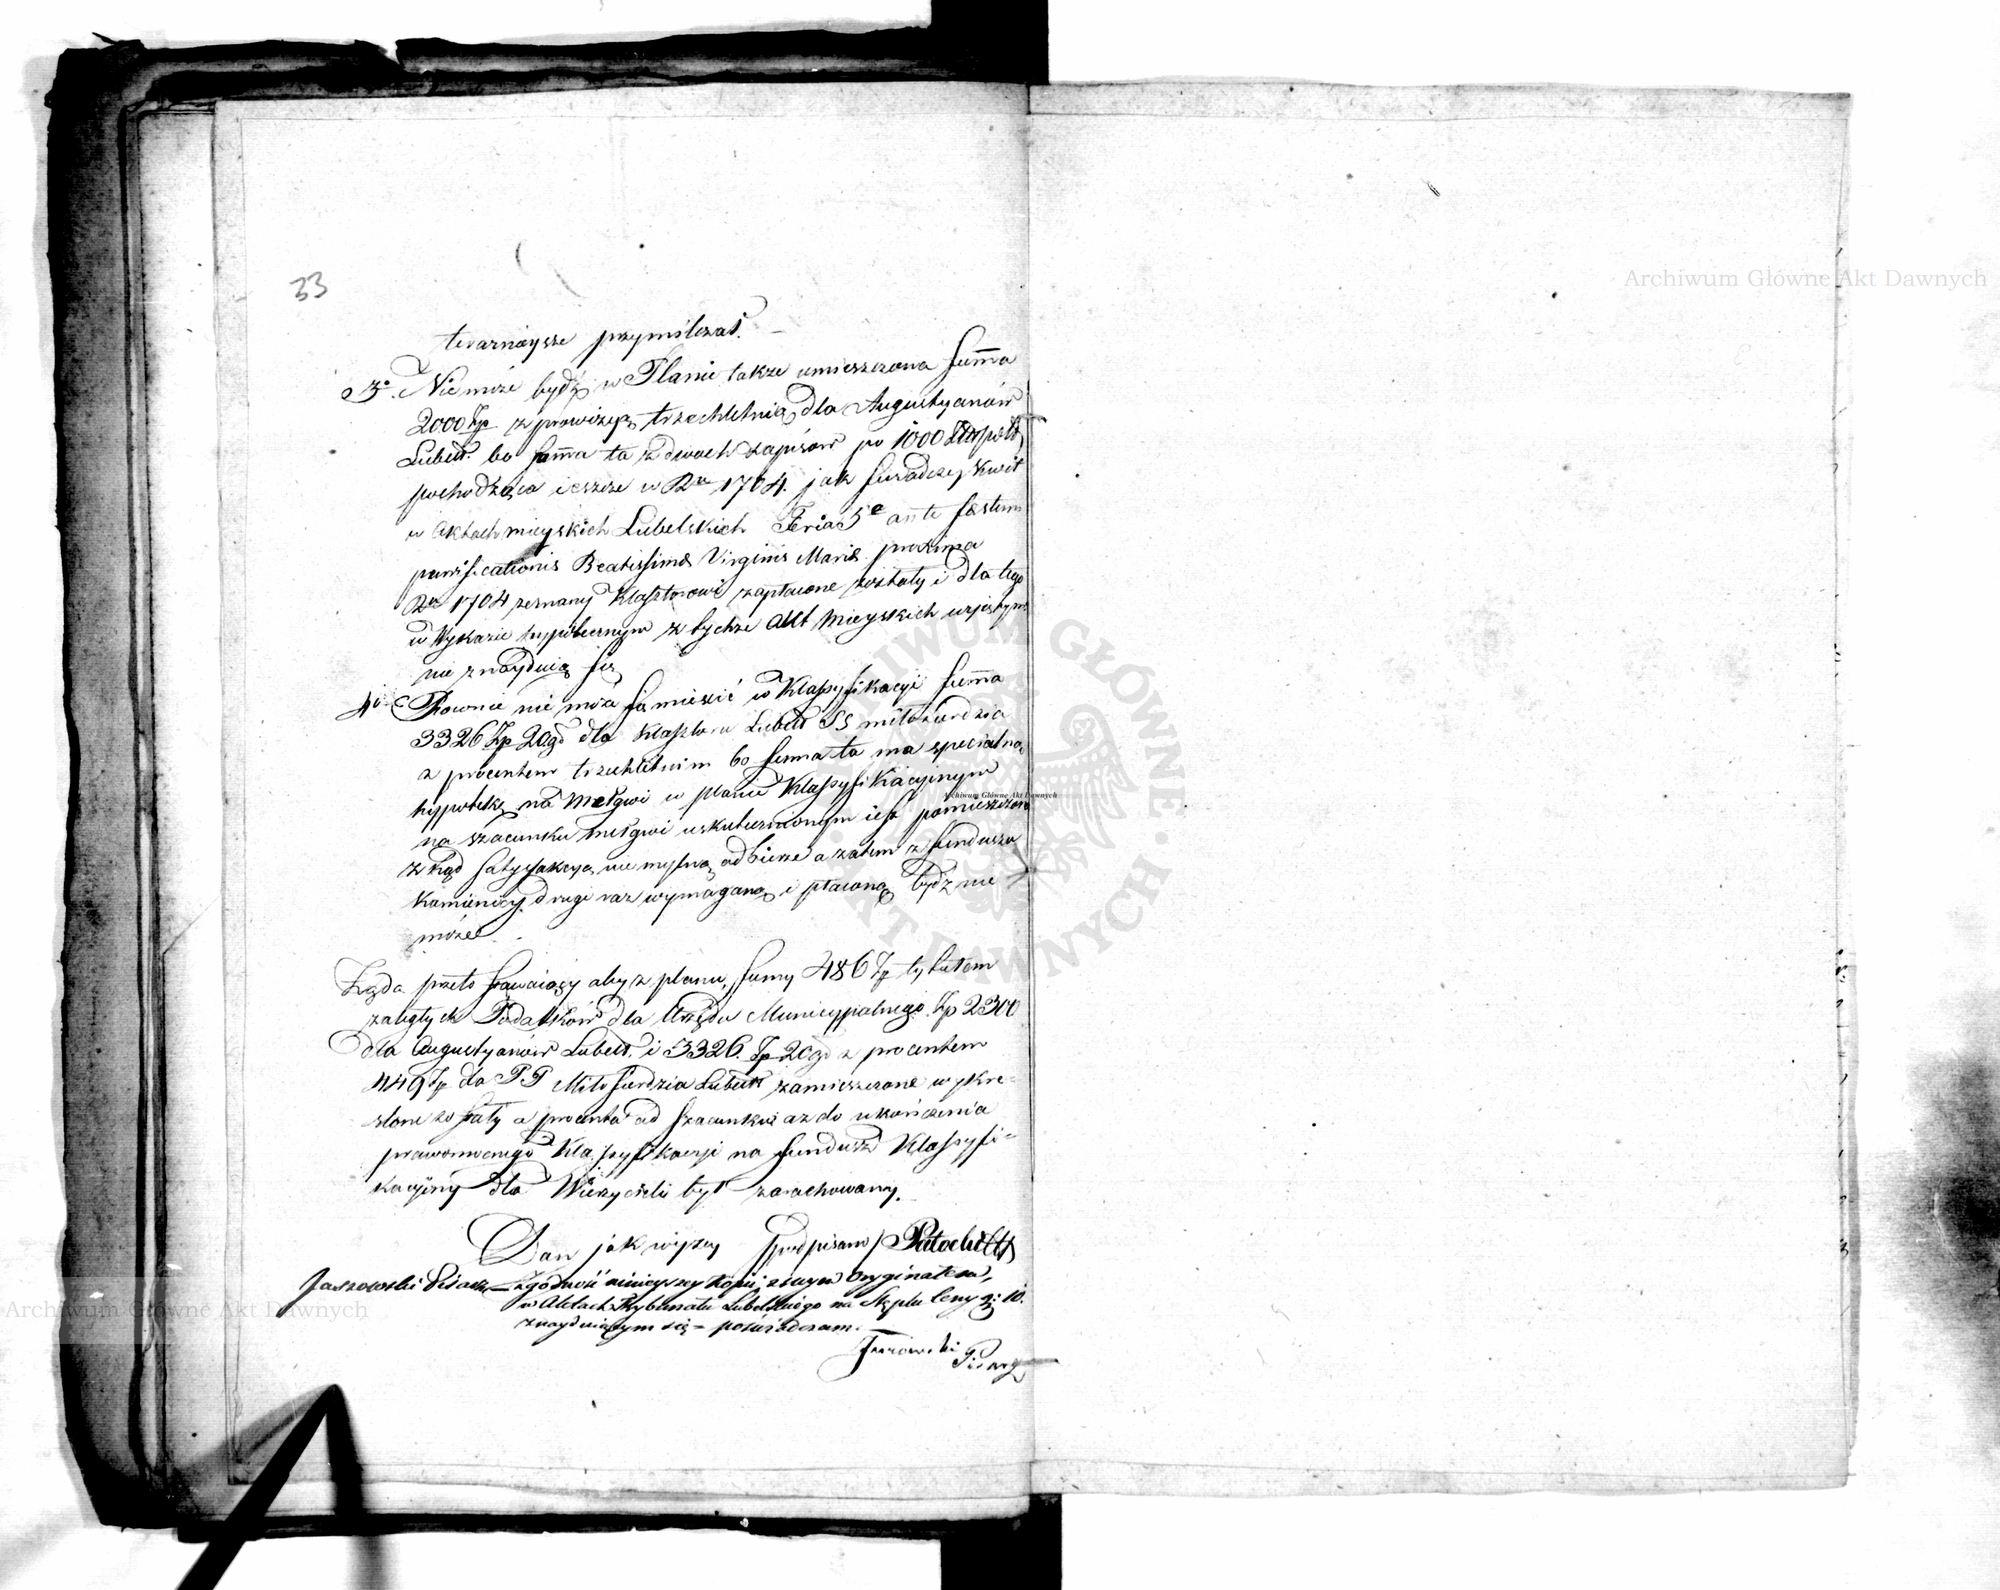 33
twarnieysze przymilczał. —
3°. Nie może bydź w Planie także umieszczona Summa
2000 Złp z prowizyą trzechletnią dla Augustyanów
Lubell. bo summa ta z dwóch zapisów po 1000
pochodząca ieszcze w Ru 1704. jak świadczy kwit
w Aktach mieyskich Lubelskich Feria 5ª ante festum
purificationis Beatissimæ Virginis Mariæ proxima
Ru 1704 zeznany klasztorowi zapłacone zostały i dla tego
w Wykazie hypotecznym z tychże akt Mieyskich
nie znayduią się
4° Rownie nie może się mieścić w Klassyfikacyi Summa
3326 Złp 20 gr dla klasztoru Lubell SS miłosierdzia
z procentem trzechletnim bo summa ta ma specialną
hypotekę na Mełgwi w planie Klassyfikacyinym
na szacunku Mełgwi uskutecznionym iest pomieszczona
zkąd satysfakcyą niemylną odbierze a zatem z funduszu
Kamienicy drugi raz wymaganą i płaconą bydz nie
może
Żąda przeto stawaiący aby z planu, sumy 486 Zł tytułem
zaległych Podatków dla Urzędu Municypalnego Złp 2300
dla Augustyanów Lubell. i 3326 Złp 20 gr z procentem
449 Złp dla PP Miłosierdzia Lubell zamieszczone wykre-
slone zostały a procenta od szacunku aż do ukończenia
prawomocnego Klassyfikacyi na fundusz Klassyfi-
kacyiny dla Wierzycieli był zarachowany.
Dan jak wyżey /podpisano/
Zgodność ninieyszey kopii, z swym Oryginałem,
w Aktach Trybunału Lubelskiego na Stęplu Ceny gr: 10.
znayduiącym się — poświadczam. —
Pisarz
Archiwum Główne Akt Dawnych
Archiwum Główne Akt Dawnych
Archiwum Główne Akt Dawnych
ARCHIWUM GŁÓWNE AKT DAWNYCH